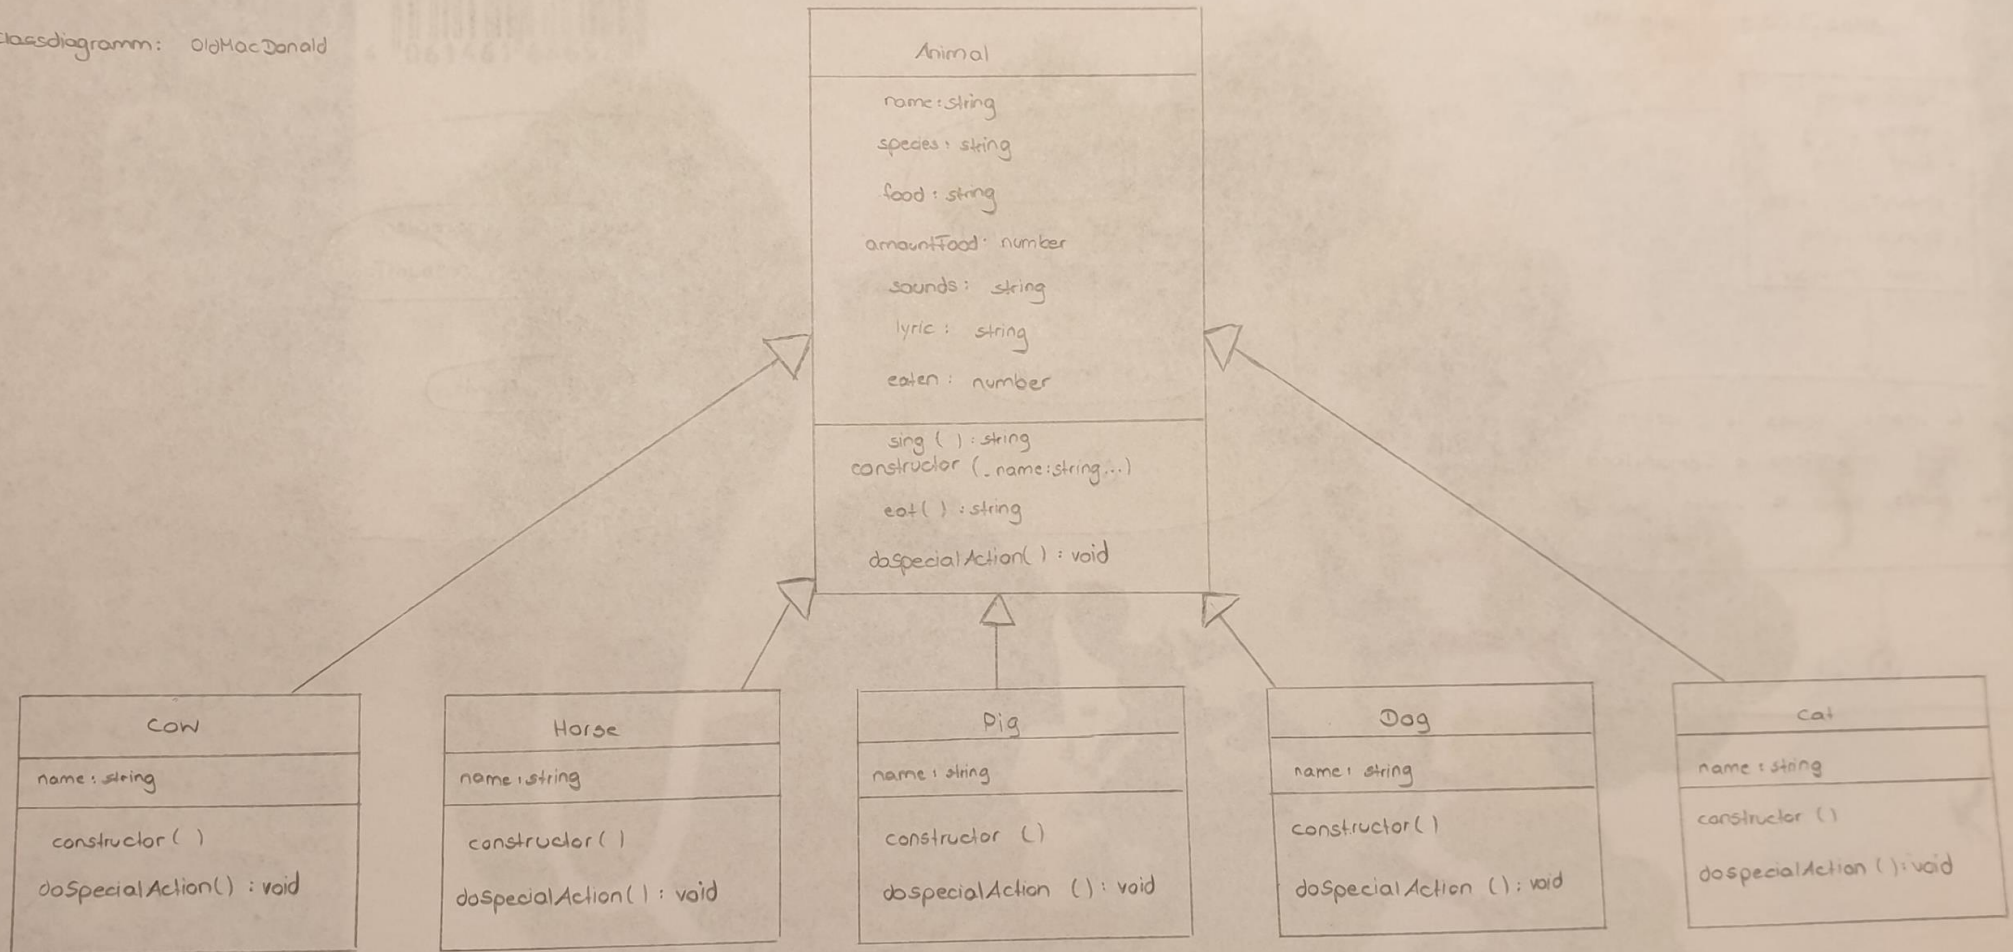 Classdiagramm: OldMacDonald
Animal
name: string
species: string
food: string
amountFood: number
sounds: string
lyric: string
eaten: number
sing ( ): string
constructor (_name:string...)
eat( ): string
doSpecialAction( ): void
Cow
name: string
constructor ( )
doSpecialAction( ): void
Horse
name: string
constructor( )
doSpecialAction( ): void
Pig
name: string
constructor ( )
doSpecialAction ( ): void
Dog
name: string
constructor( )
doSpecialAction ( ): void
Cat
name: string
constructor ( )
doSpecialAction ( ): void